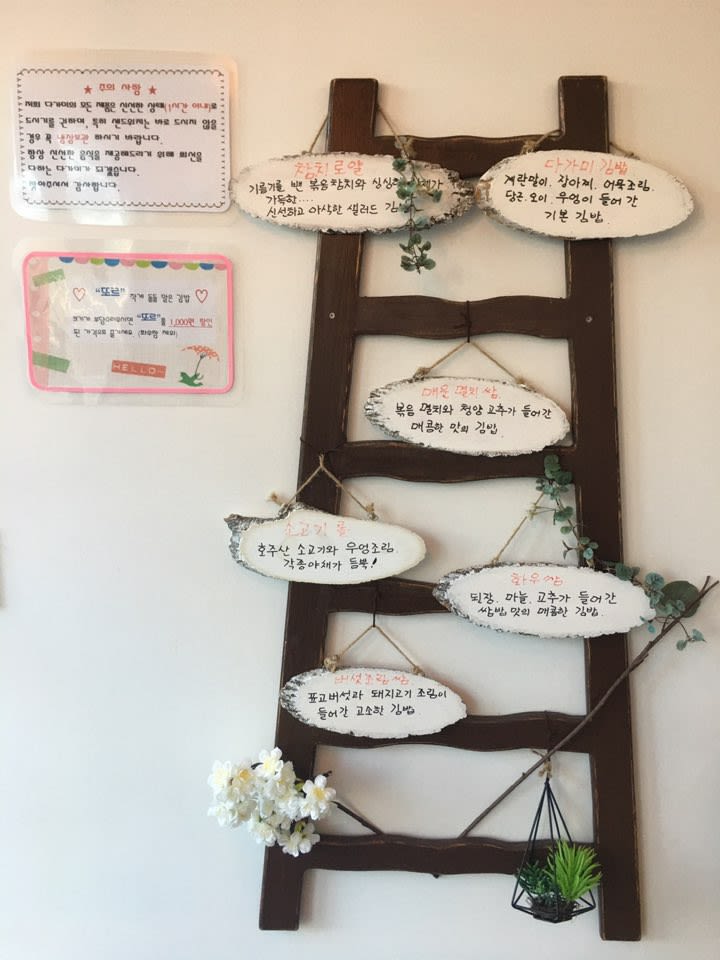 ★ 주의 사항 ★
저희 다가미의 모든 제품은 신선한 상태(1시간 이내)로
드시기를 권하며, 특히 샌드위치는 바로 드시지 않을
경우 꼭 냉장보관 하시기 바랍니다.
항상 신선한 음식을 제공해드리기 위해 최선을
다하는 다가미가 되겠습니다.
감사합니다.
♡ "또르" 작게 돌돌 말은 김밥 ♡
크기가 부담스러우시면 "또르"를 1,000원 할인
된 가격으로 즐기세요. (화우쌈 제외)
HELLO~
참치로얄
기름기를 뺀 볶음참치와 싱싱한 야채가
가득한....
신선하고 아삭한 샐러드 김밥
다가미 김밥
계란말이, 장아찌, 어묵조림,
당근, 오이, 우엉이 들어간
기본 김밥.
매운 멸치 쌈.
볶음 멸치와 청양 고추가 들어간
매콤한 맛의 김밥.
소고기 롤
호주산 소고기와 우엉조림,
각종야채가 듬뿍!
화우쌈
된장, 마늘, 고추가 들어간
쌈밥 맛의 매콤한 김밥.
버섯조림쌈.
표고버섯과 돼지고기 조림이
들어간 고소한 김밥